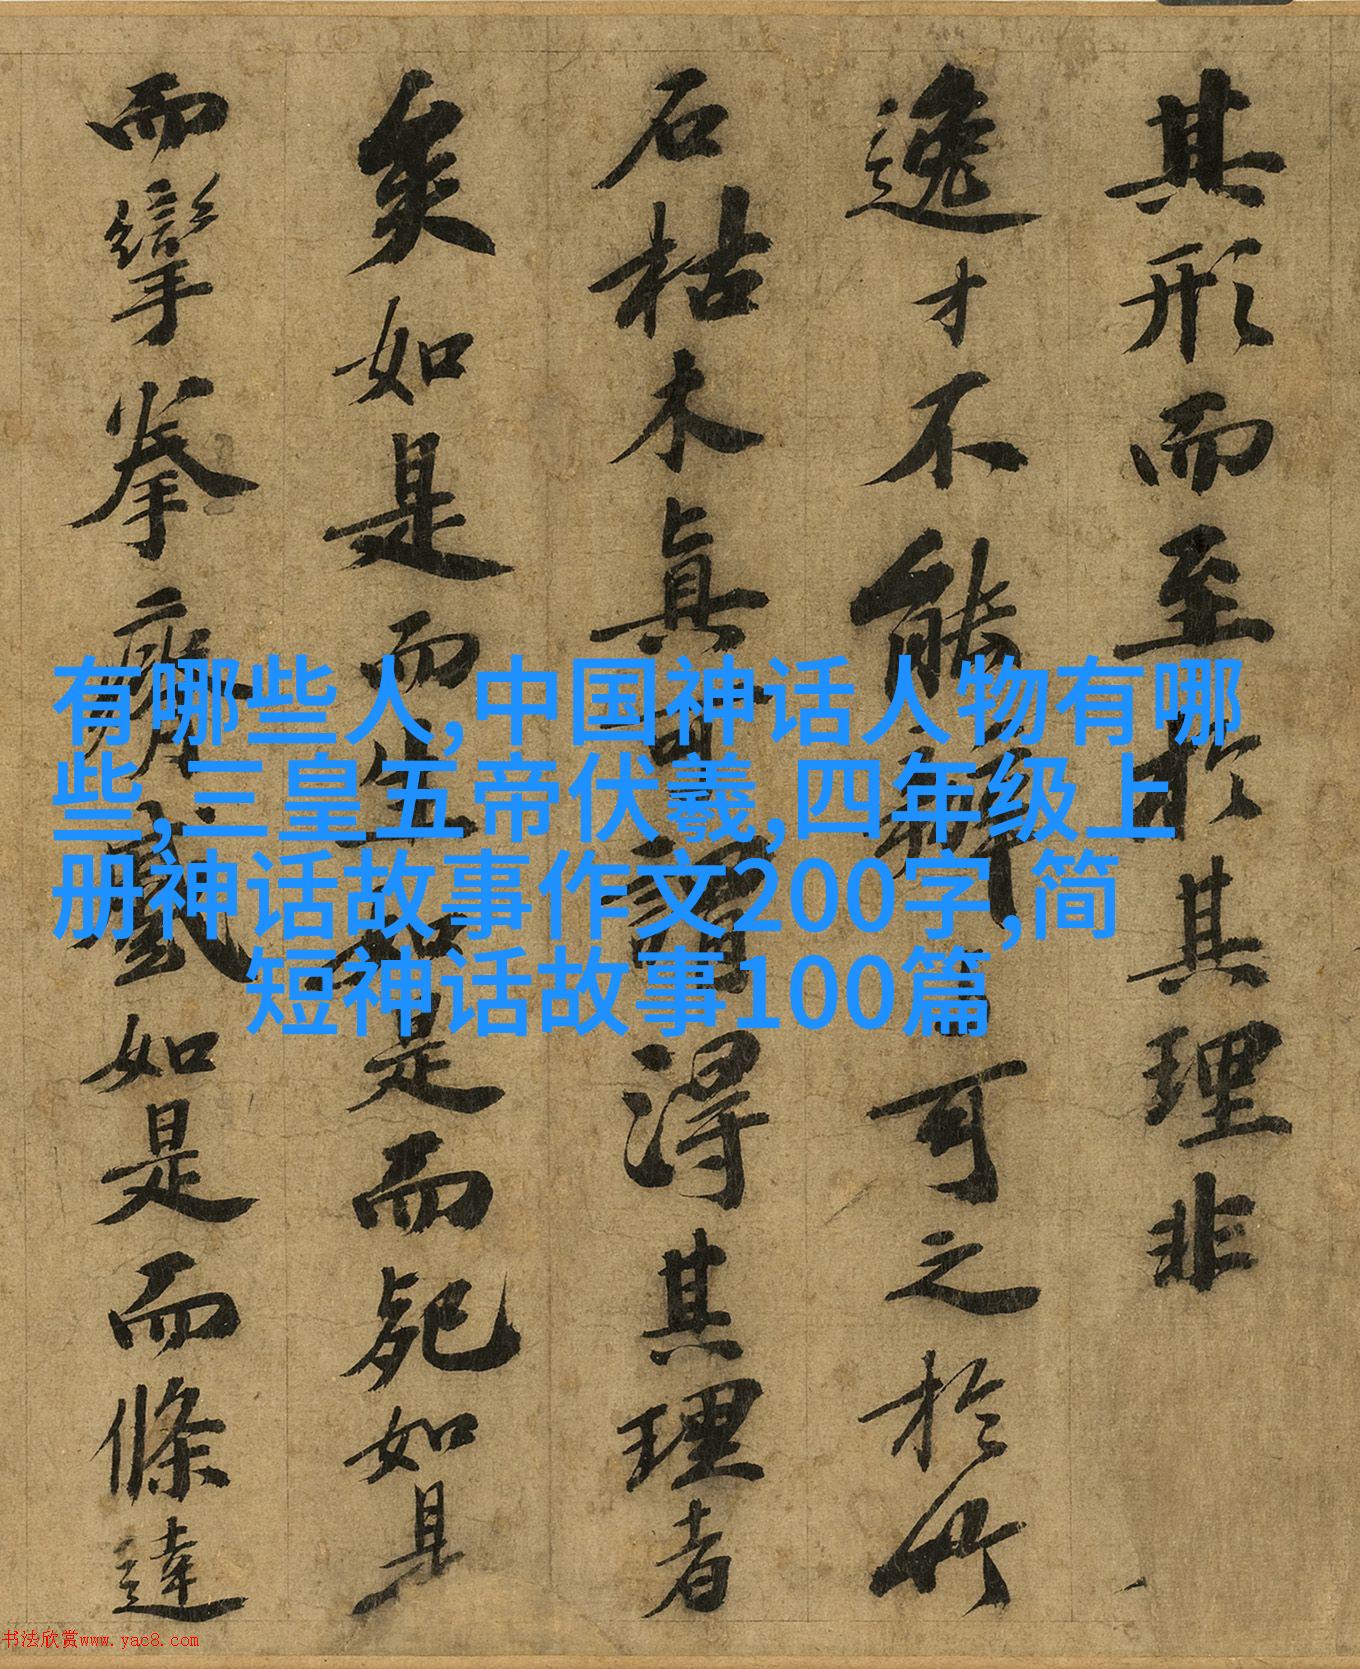 其形而至於其理非
逸才不能辨可之於竹
石枯木真可謂得其理者
矣如是而生如是而死如是
而攣拳瘠蹙如是而條達
有哪些人,中国神话人物有哪
些,三皇五帝伏羲,四年级上
册神话故事作文200字,简
短神话故事100篇
书法欣赏www.yac8.com